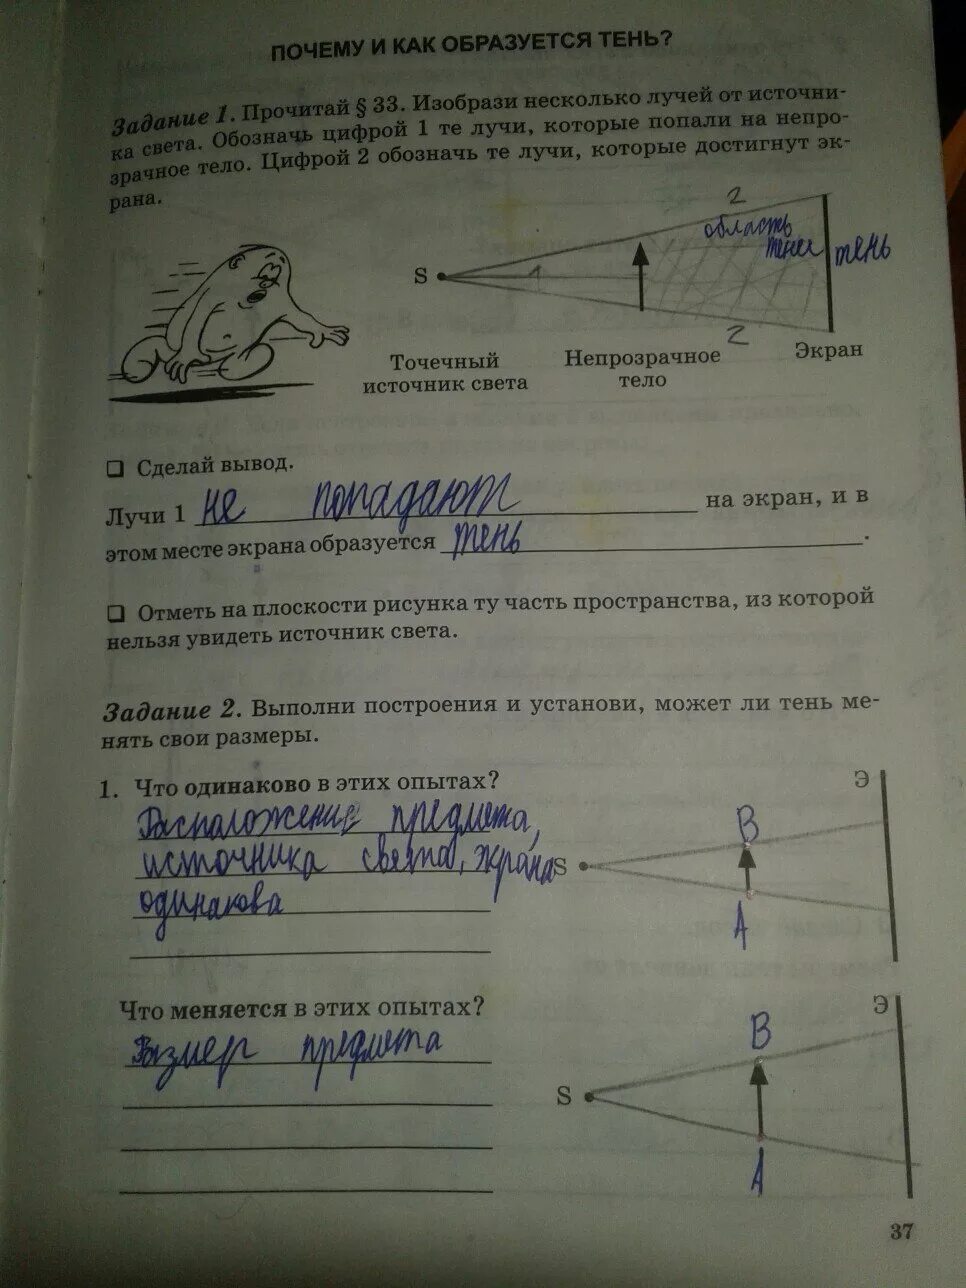 ПОЧЕМУ И КАК ОБРАЗУЕТСЯ ТЕНЬ?
Задание 1. Прочитай § 33. Изобрази несколько лучей от источни-
ка света. Обозначь цифрой 1 те лучи, которые попали на непро-
зрачное тело. Цифрой 2 обозначь те лучи, которые достигнут эк-
рана.
2
область
тени тень
S 1
2
Точечный
источник света
Непрозрачное
тело
Экран
❑ Сделай вывод.
Лучи 1 не попадают на экран, и в
этом месте экрана образуется тень.
❑ Отметь на плоскости рисунка ту часть пространства, из которой
нельзя увидеть источник света.
Задание 2. Выполни построения и установи, может ли тень ме-
нять свои размеры.
1. Что одинаково в этих опытах?
Расположение предмета,
источника света, экрана
одинакова
Э
B
S
A
Что меняется в этих опытах?
Размер предмета
Э
B
S
A
37